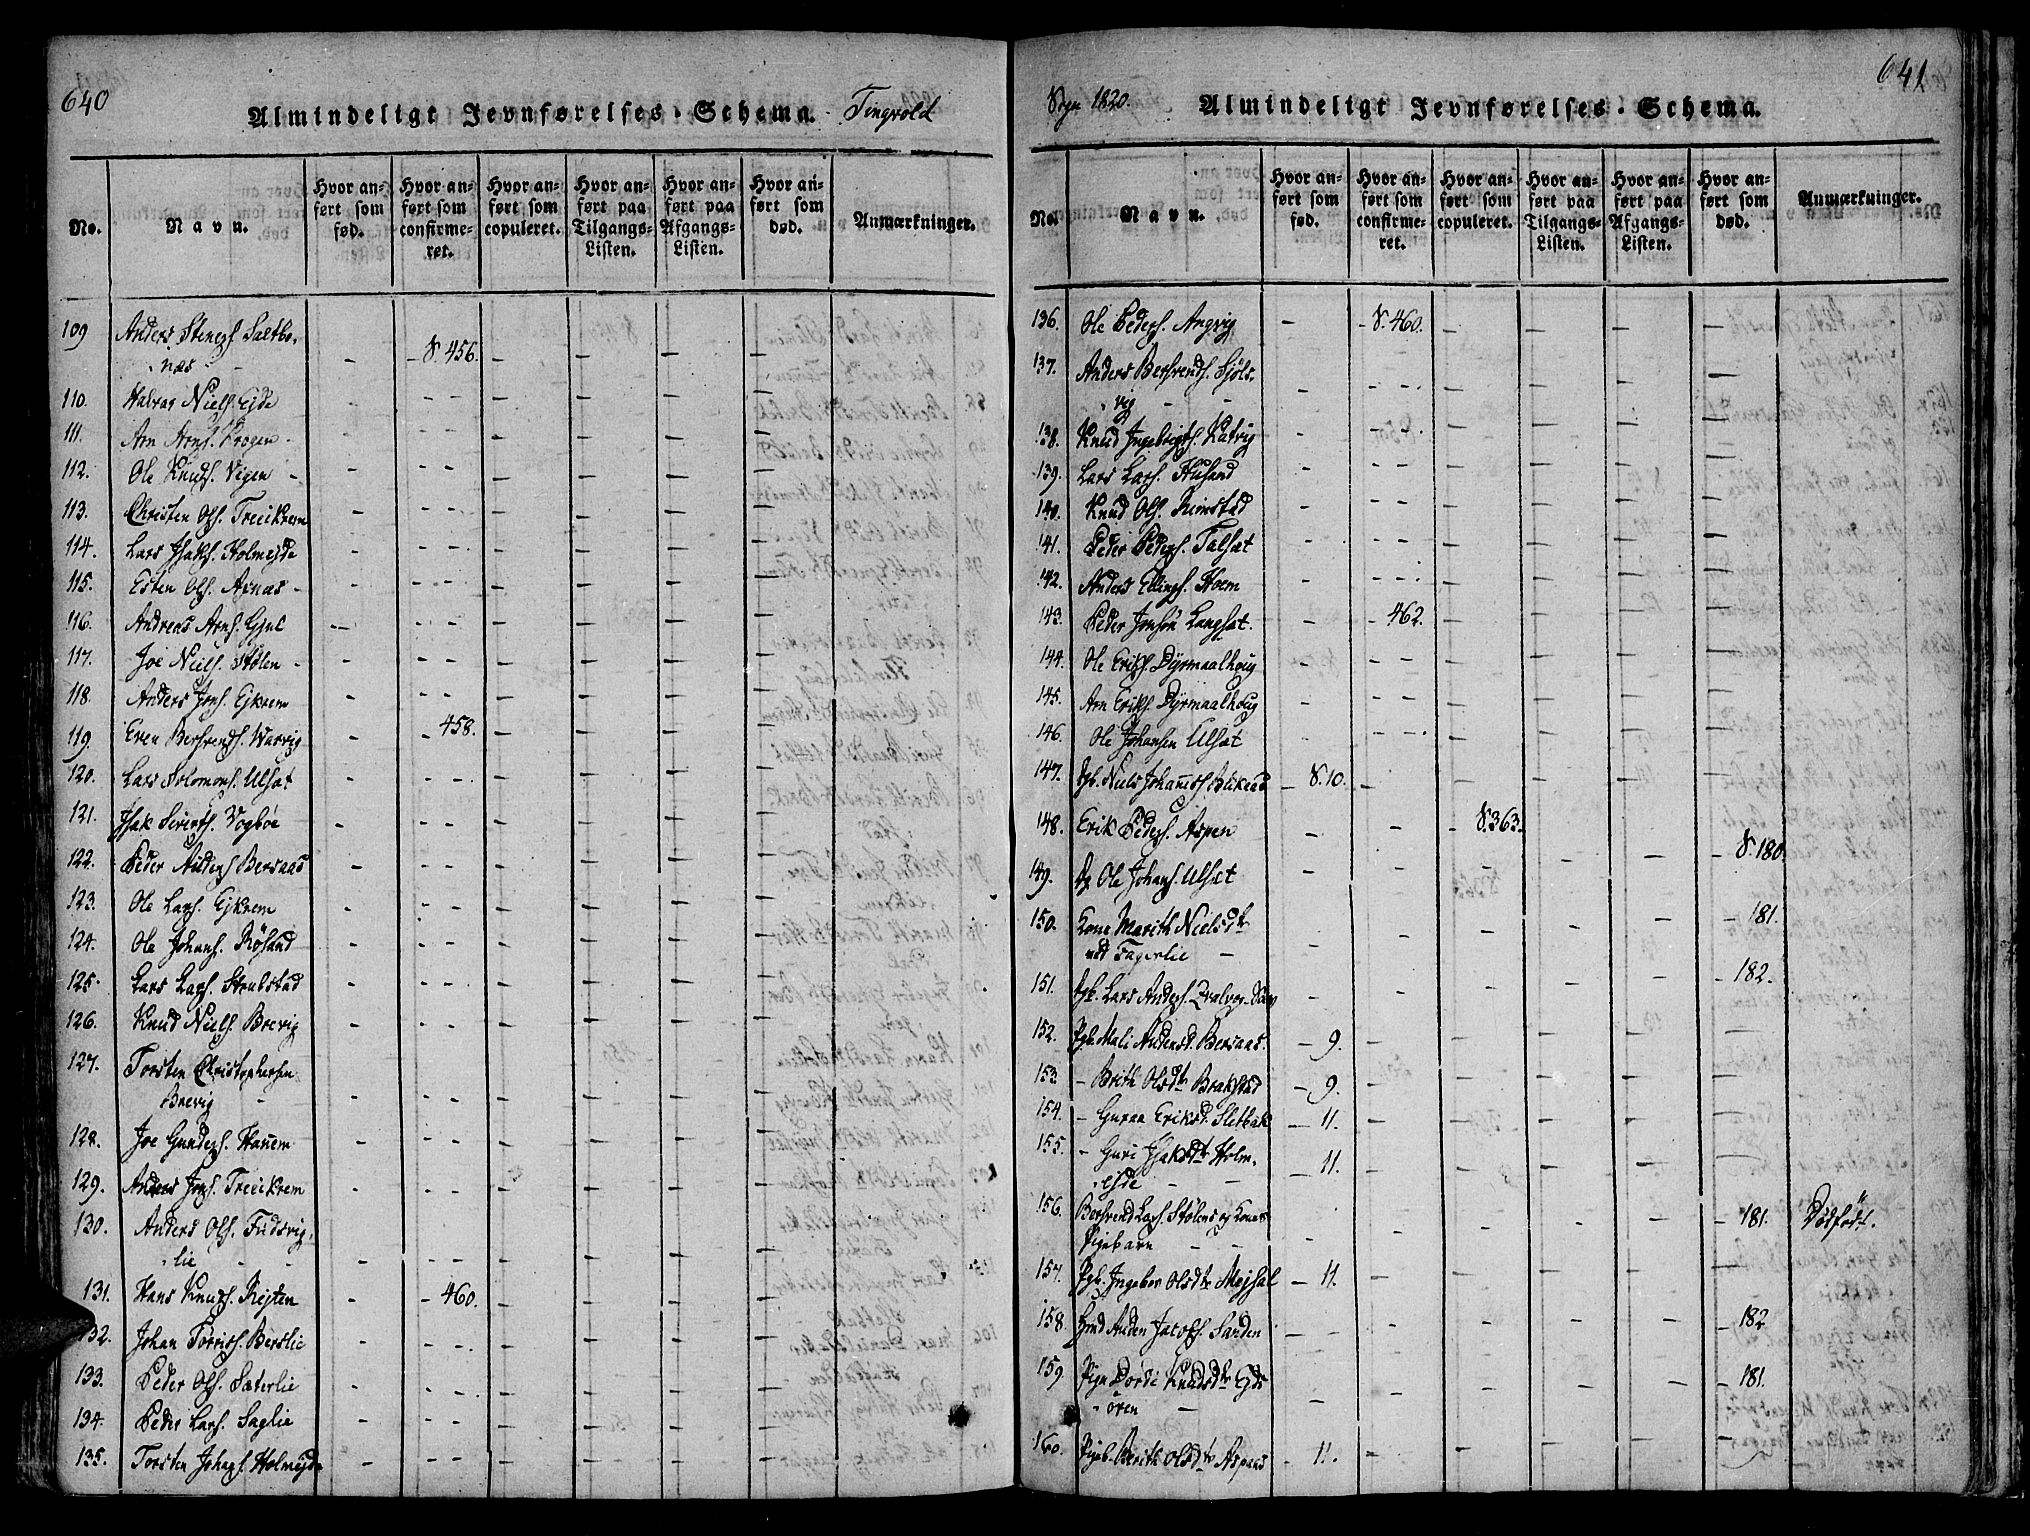 640
Almindeligt Jevnførelses-Schema. Tingvold
No.
Navn.
Hvor anført som fød.
Hvor anført som confirmeret.
Hvor anført som copuleret.
Hvor anført paa Tilgangs-Listen.
Hvor anført paa Afgangs-Listen.
Hvor anført som død.
Anmærkninger.
109 Anders Steners. Saltbo- - - S. 456. - - - -
næs -
110. Halvor Niels. Ejde - - - - - - -
111. Arn Arns. Krogen - - - - - - -
112. Ole Knuds. Vigen - - - - - - -
113. Christen Ols. Treeikrem - - - - - - -
114. Lars Isaks. Holmejde - - - - - - -
115. Esten Ols. Aknæs - - - - - - -
116. Andreas Arns. Gjul - - - - - - -
117. Joe Niels. Stølen - - - - - - -
118. Anders Jons. Ejkrem - - - - - - -
119. Even Bersvends. Warvig - - 458. - - - -
120. Lars Solomons. Ulsæt - - - - - - -
121. Isak Siverts. Vogbøe - - - - - - -
122. Peder Anders. Bersaas - - - - - - -
123. Ole Lars. Ejkrem - - - - - - -
124. Ole Johans. Røsand - - - - - - -
125. Lars Lars. Stubstad - - - - - - -
126. Knud Niels. Brevig - - - - - - -
127. Torsten Christophersen - - - - - - -
Brevig -
128. Joe Gunders. Hanem - - - - - - -
129. Anders Jons. Treeikrem - - - - - - -
130. Anders Ols. Fridsvig-
lie - - - - - - - -
131. Hans Knuds. Rejten - - 460. - - - -
132. Johan Torris. Berslie - - - - - - -
133. Peder Ols. Sæterlie - - - - - - -
134. Peder Lars. Saglie - - - - - - -
135. Torsten Johans. Holmejde - - - - - - -
641
Sogn 1820. Almindeligt Jevnførelses-Schema.
No.
Navn.
Hvor anført som fød.
Hvor anført som confirmeret.
Hvor anført som copuleret.
Hvor anført paa Tilgangs-Listen.
Hvor anført paa Afgangs-Listen.
Hvor anført som død.
Anmærkninger.
136. Ole Peders. Angvig - - S. 460. - - - -
137. Anders Bersvends. Sjøls-
vig - - - - - - - -
138. Knud Ingebrigts. Kutvig - - - - - - -
139. Lars Lars. Husand - - - - - - -
140. Knud Ols. Rimstad - - - - - - -
141. Peder Peders. Talsæt - - - - - - -
142. Anders Ellings. Hoem - - - - - - -
143. Peder Jonsøn Langsæt. - - 462. - - - -
144. Ole Eriks. Dyrmaalhoug - - - - - - -
145. Arn Eriks. Dyrmaalhoug - - - - - - -
146. Ole Johansen Ulsæt - - - - - - -
147. Dgb. Niels Johannes. - S. 10. - - - - -
148. Erik Peders. Aspen - - - S. 363. - - -
149. Dg Ole Johans. Ulsæt - - - - - - S. 180.
150. Kone Marith Nielsdtr - - - - - - 181.
ved Fagerlie -
151. Dgb. Lars Anders. - - - - - - 182.
152. Pgb. Mali Andersd. Bersaas. - 9. - - - - -
153. - Brith Olsdtr Brakstad - 9. - - - - -
154. - Guraa Eriksd. Sletbak - 11. - - - - -
155. - Guri Isaksdtr Holm-
ejde - - - 11. - - - - -
156. Bersvend Lars. Stølens og Kones - - - - - - 181. Dødfødt.
Pigebarn - -
157. Pgb. Ingebor Olsdtr Mejsal - 11. - - - - -
158. Anden Jacobs. Sanden - - - - - - 182
159. Pign Dordi Knudsdtr Ejds- - - - - - - 181.
øren -
160. Pigeb. Berith Olsdtr Aspaas - 11. - - - - -